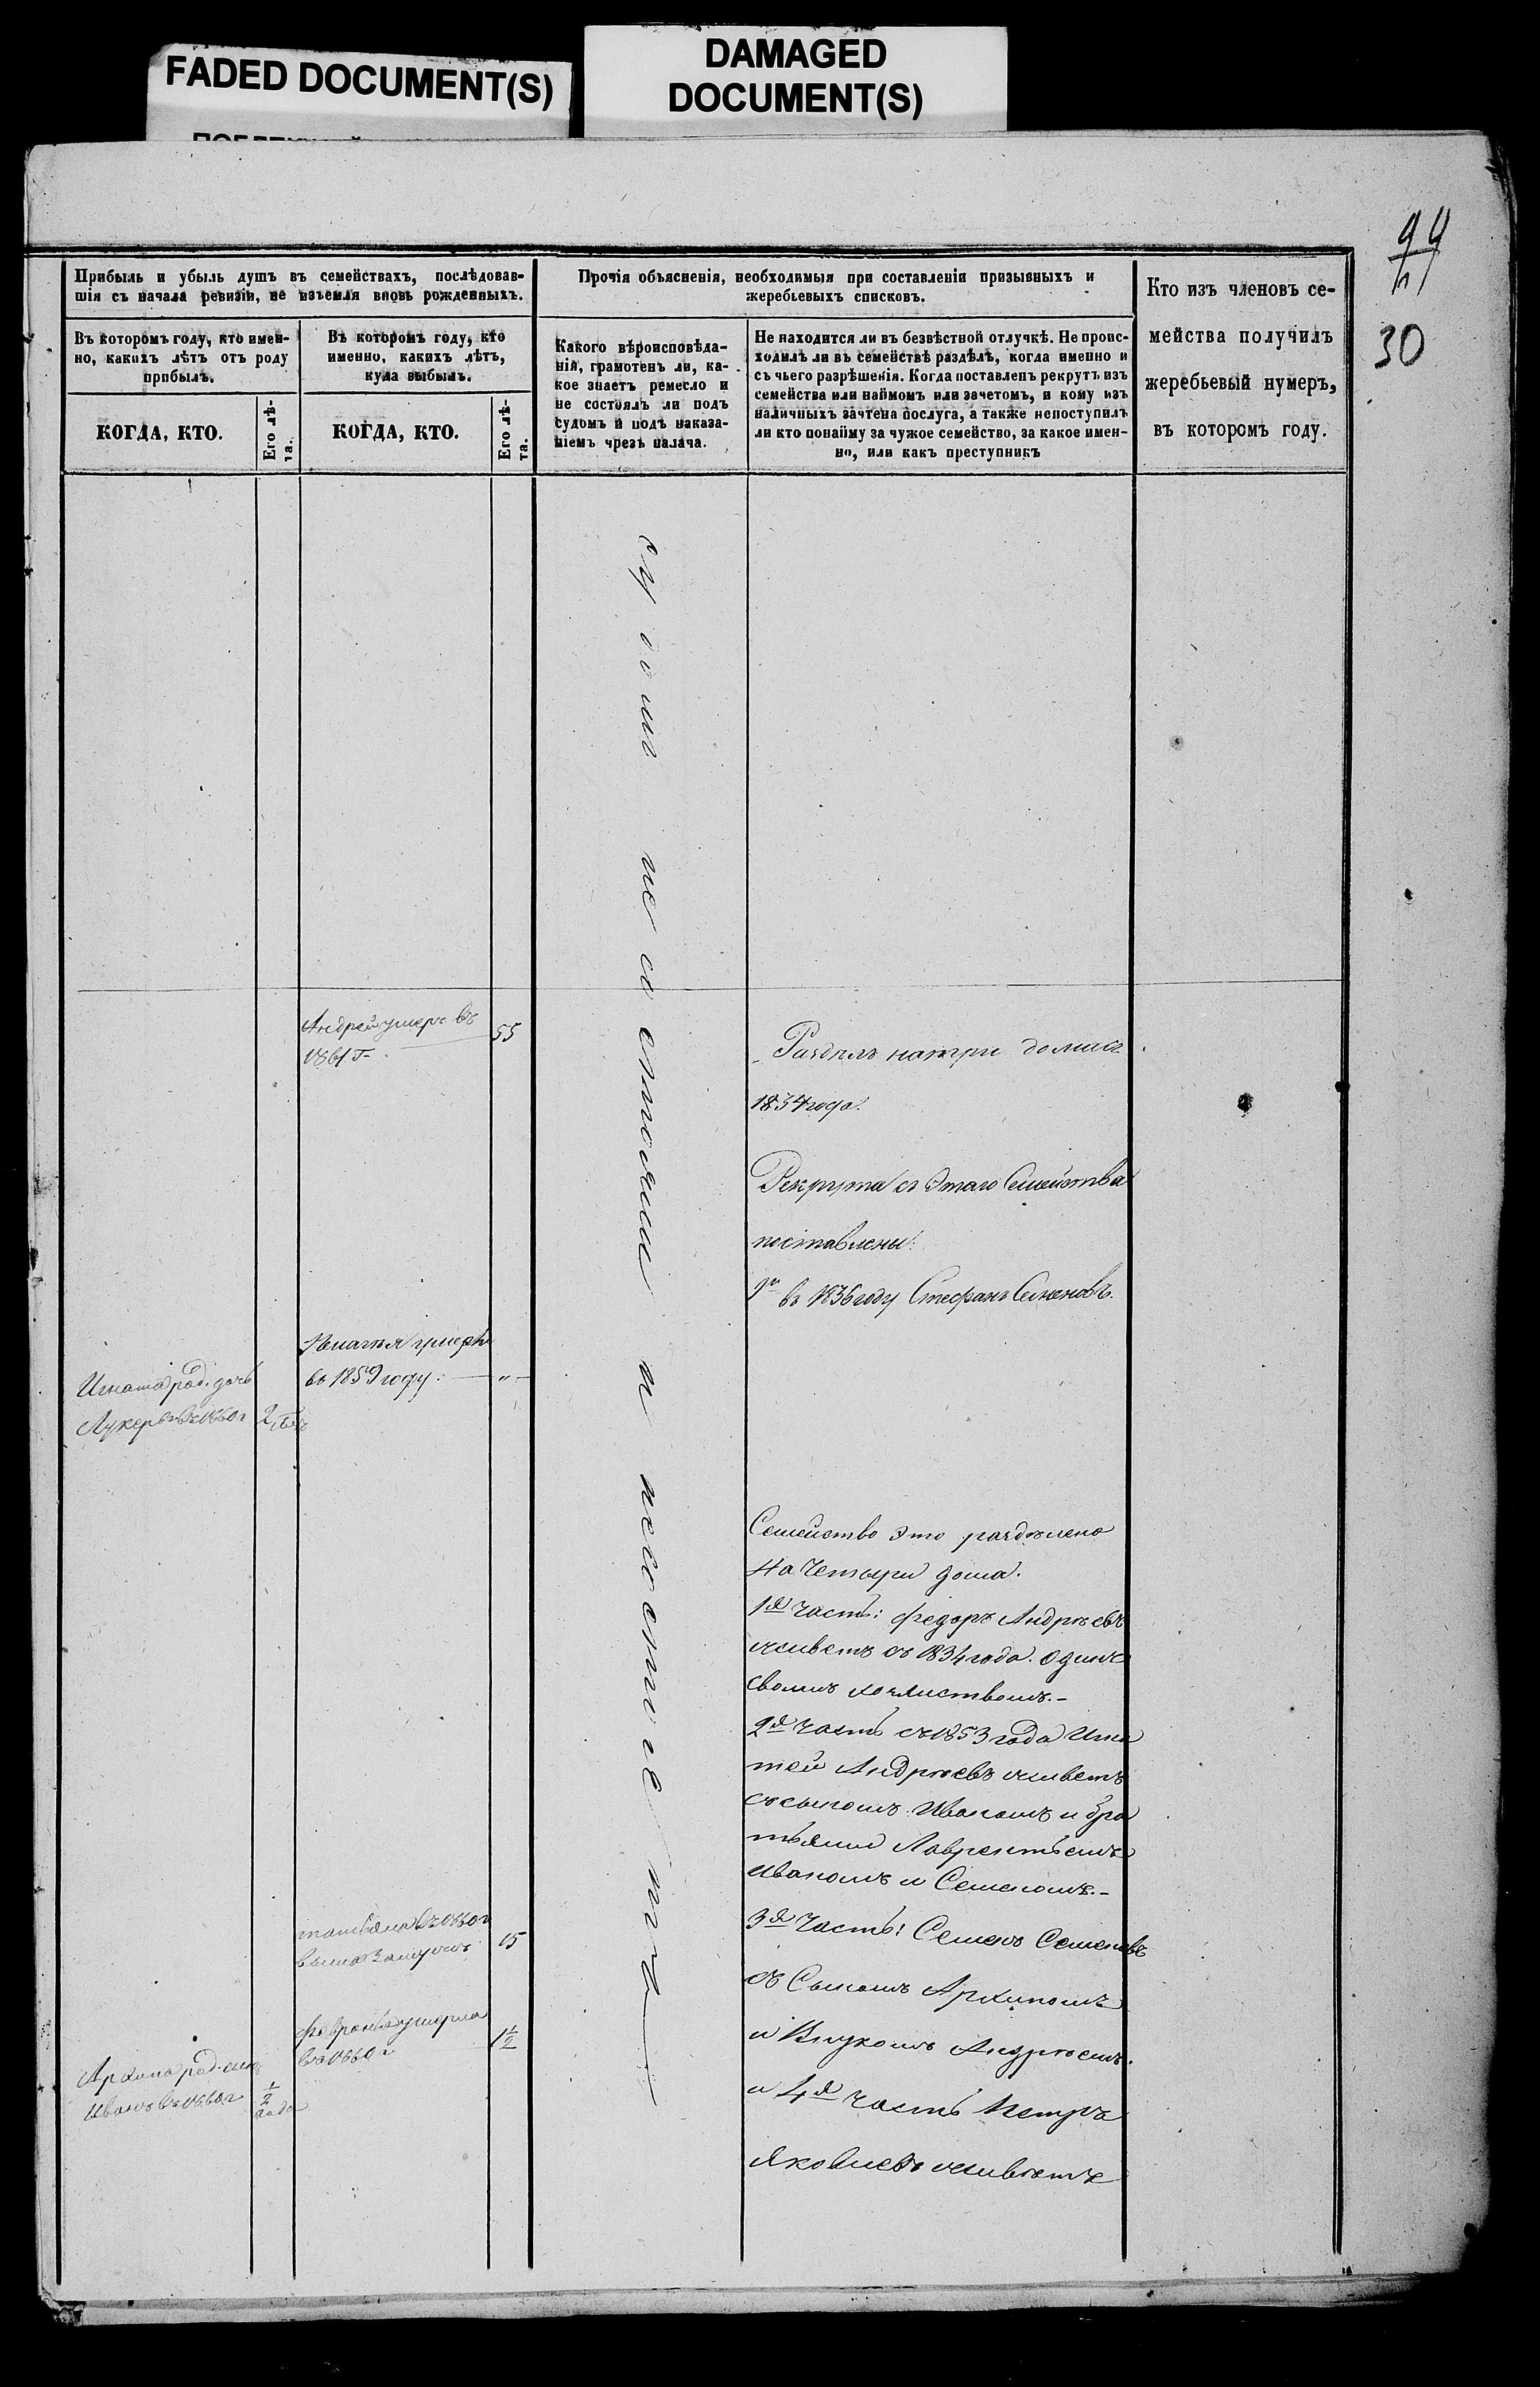 FADED DOCUMENT(S)
DAMAGED
DOCUMENT(S)
30
Прибыль и убыль душъ въ семействахъ, послѣдовав-
шія съ начала ревизіи, не изъемля вновь рожденныхъ.
Прочія объясненія, необходимыя при составленіи призывныхъ и
жеребьевыхъ списковъ.
Кто изъ членовъ се-
мейства получилъ
жеребьевый нумеръ,
въ которомъ году.
Въ которомъ году, кто имен-
но, какихъ лѣтъ отъ роду
прибылъ.
Въ которомъ году, кто
именно, какихъ лѣтъ,
куда выбылъ.
Какого вѣроисповѣда-
нія, грамотенъ ли, ка-
кое знаетъ ремесло и
не состоялъ ли подъ
судомъ и подъ наказа-
ніемъ чрезъ палача.
Не находится ли въ безвѣстной отлучкѣ. Не проис-
ходилъ ли въ семействѣ раздѣлъ, когда именно и
съ чьего разрѣшенія. Когда поставленъ рекрутъ изъ
семейства или наймомъ или зачетомъ, и кому изъ
наличныхъ зачтена послуга, а также непоступилъ
ли кто понайму за чужое семейство, за какое имен-
но, или какъ преступникъ
КОГДА, КТО.
Его лѣ-
та.
КОГДА, КТО.
Его лѣ-
та.
Андрей умеръ въ
1861 г.
55
Раздѣлъ на три дома съ
1834 года.
Рекрута съ Этаго Семейства
поставлены:
въ 1836 году Стефанъ Семеновъ.
умеръ
въ 1859 году.
"
род. дочь
Лукерья въ 1860 г
2
не состояли и несостоитъ
Семейство Это раздѣлено
На Четыри дома.
1я часть: Федоръ Андрѣевъ
живетъ съ 1834 года. Одинъ
своимъ хозяиствомъ.-
2я часть съ 1853 года Игна
тей Андрѣевъ живетъ
съ сыномъ Иваномъ и бра
тьями Лаврентьемъ
Иваномъ и Семеномъ.-
3я Часть: Семенъ Семеновъ
съ Сыномъ Архипомъ
и Внукомъ Андрѣемъ.
и 4я часть Петръ
Яковлевъ живѣтъ
татьяна въ 1860 г
вышла замужъ
15
февронья умерла
въ 1860 г
1 1/2
Архипа род. сынъ
Иванъ въ 1860 г
1/2
года